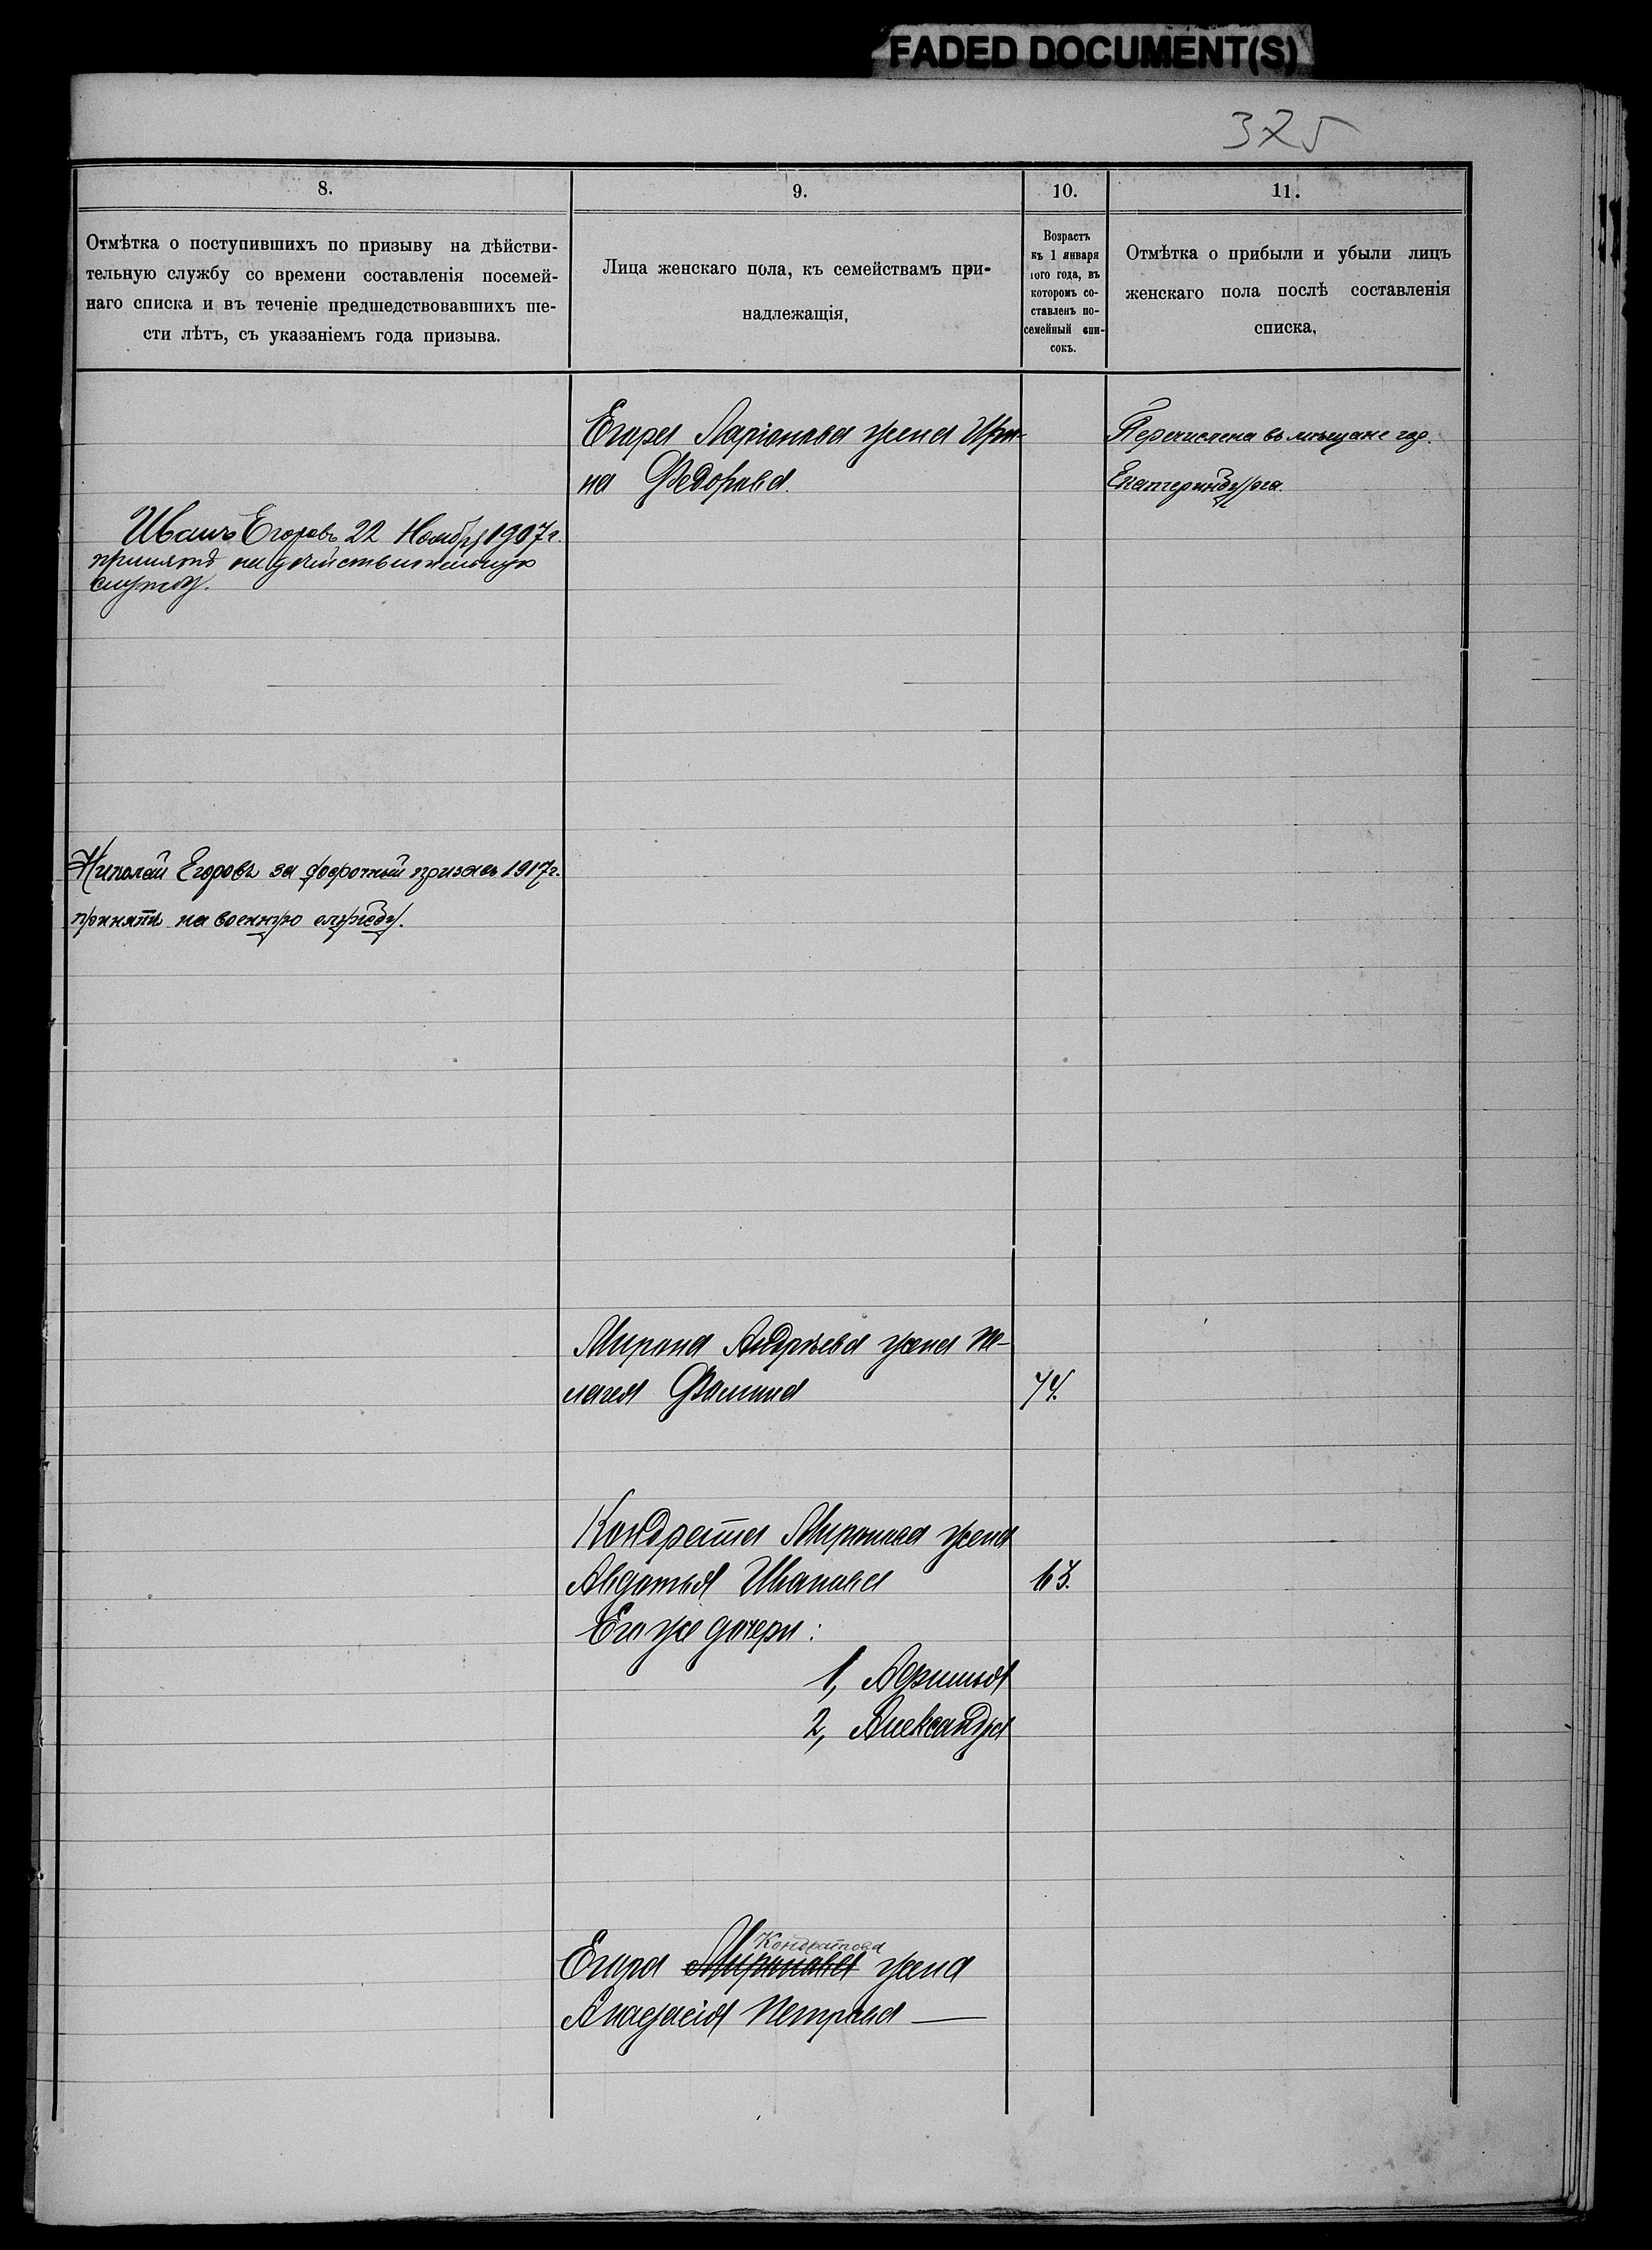 FADED DOCUMENT(S)
375
8.
9.
10.
11.
Отмѣтка о поступившихъ по призыву на дѣйстви-
тельную службу со времени составленія посемей-
наго списка и въ теченіе предшедствовавшихъ ше-
сти лѣтъ, съ указаніемъ года призыва.
Лица женскаго пола, къ семействамъ при-
надлежащія,
Возрастъ
къ 1 января
того года, въ
которомъ со-
ставленъ по-
семейный спи-
сокъ.
Отмѣтка о прибыли и убыли лицъ
женскаго пола послѣ составленія
списка,
Егора Ларіонова жена Ири-
на Федорова.
Перечислена въ мѣщане гор.
Екатеринбурга.
Иванъ Егоровъ 22 Ноября 1907 г.
принятъ на дѣйствительную
службу.
Николай Егоровъ за досрочный призывъ 1917 г.
принятъ на военную службу.
Мирона Андрѣева жена Пе-
лагея Фомина
74.
Кондратія Миронова жена
Авдотья Иванова
63.
Его же дочери:
1, Афимья
2, Александра
Кондратова
Егора Миронова жена
Анастасія Петрова —